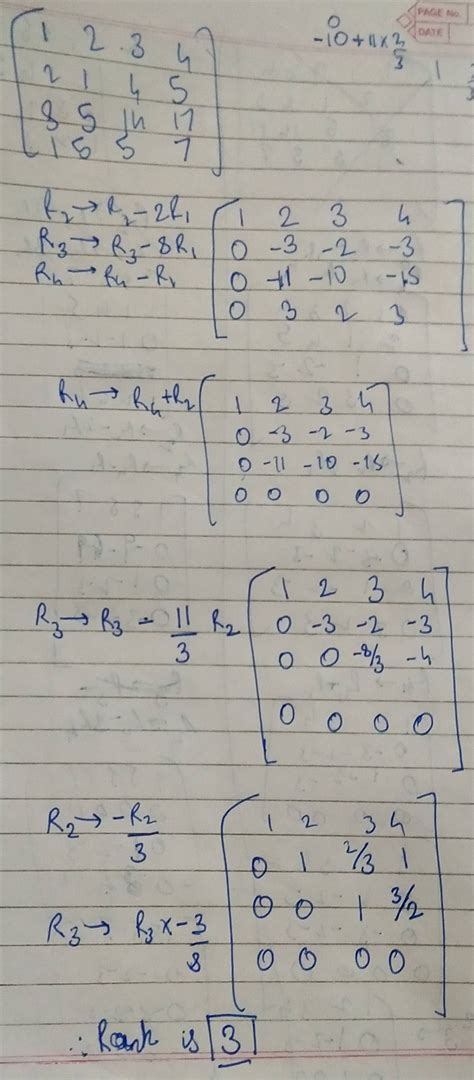 PAGE No.
DATE
0
-10 + 11 x 2/3
1
1 2 3 4
2 1 4 5
8 5 14 17
1 5 5 7
R2 → R2 - 2R1
R3 → R3 - 8R1
R4 → R4 - R1
1 2 3 4
0 -3 -2 -3
0 -11 -10 -15
0 3 2 3
R4 → R4 + R2
1 2 3 4
0 -3 -2 -3
0 -11 -10 -15
0 0 0 0
R3 → R3 - 11/3 R2
1 2 3 4
0 -3 -2 -3
0 0 -8/3 -4
0 0 0 0
R2 → -R2/3
R3 → R3 x -3/8
1 2 3 4
0 1 2/3 1
0 0 1 3/2
0 0 0 0
∴ Rank is 3